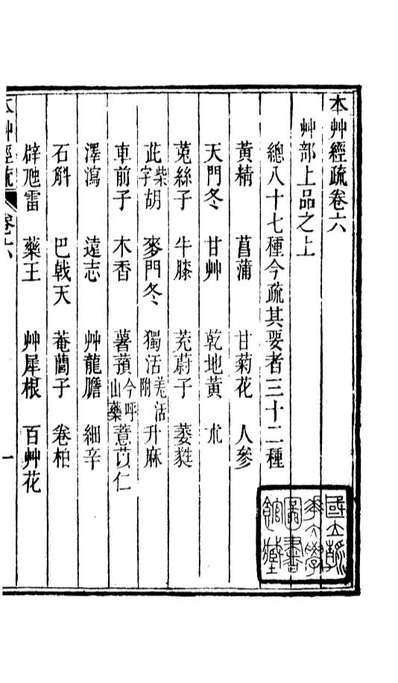 本艸經疏卷六
艸部上品之上
總八十七種今疏其要者三十二種
黃精 菖蒲 甘菊花 人參
天門冬 甘艸 乾地黃 朮
菟絲子 牛膝 茺蔚子 萎蕤
茈柴字胡 麥門冬 獨活羌活附 升麻
車前子 木香 薯蕷今呼山藥 薏苡仁
澤瀉 遠志 艸龍膽 細辛
石斛 巴戟天 菴藺子 卷柏
辟虺雷 藥王 艸犀根 百艸花
本艸經疏 卷六 一